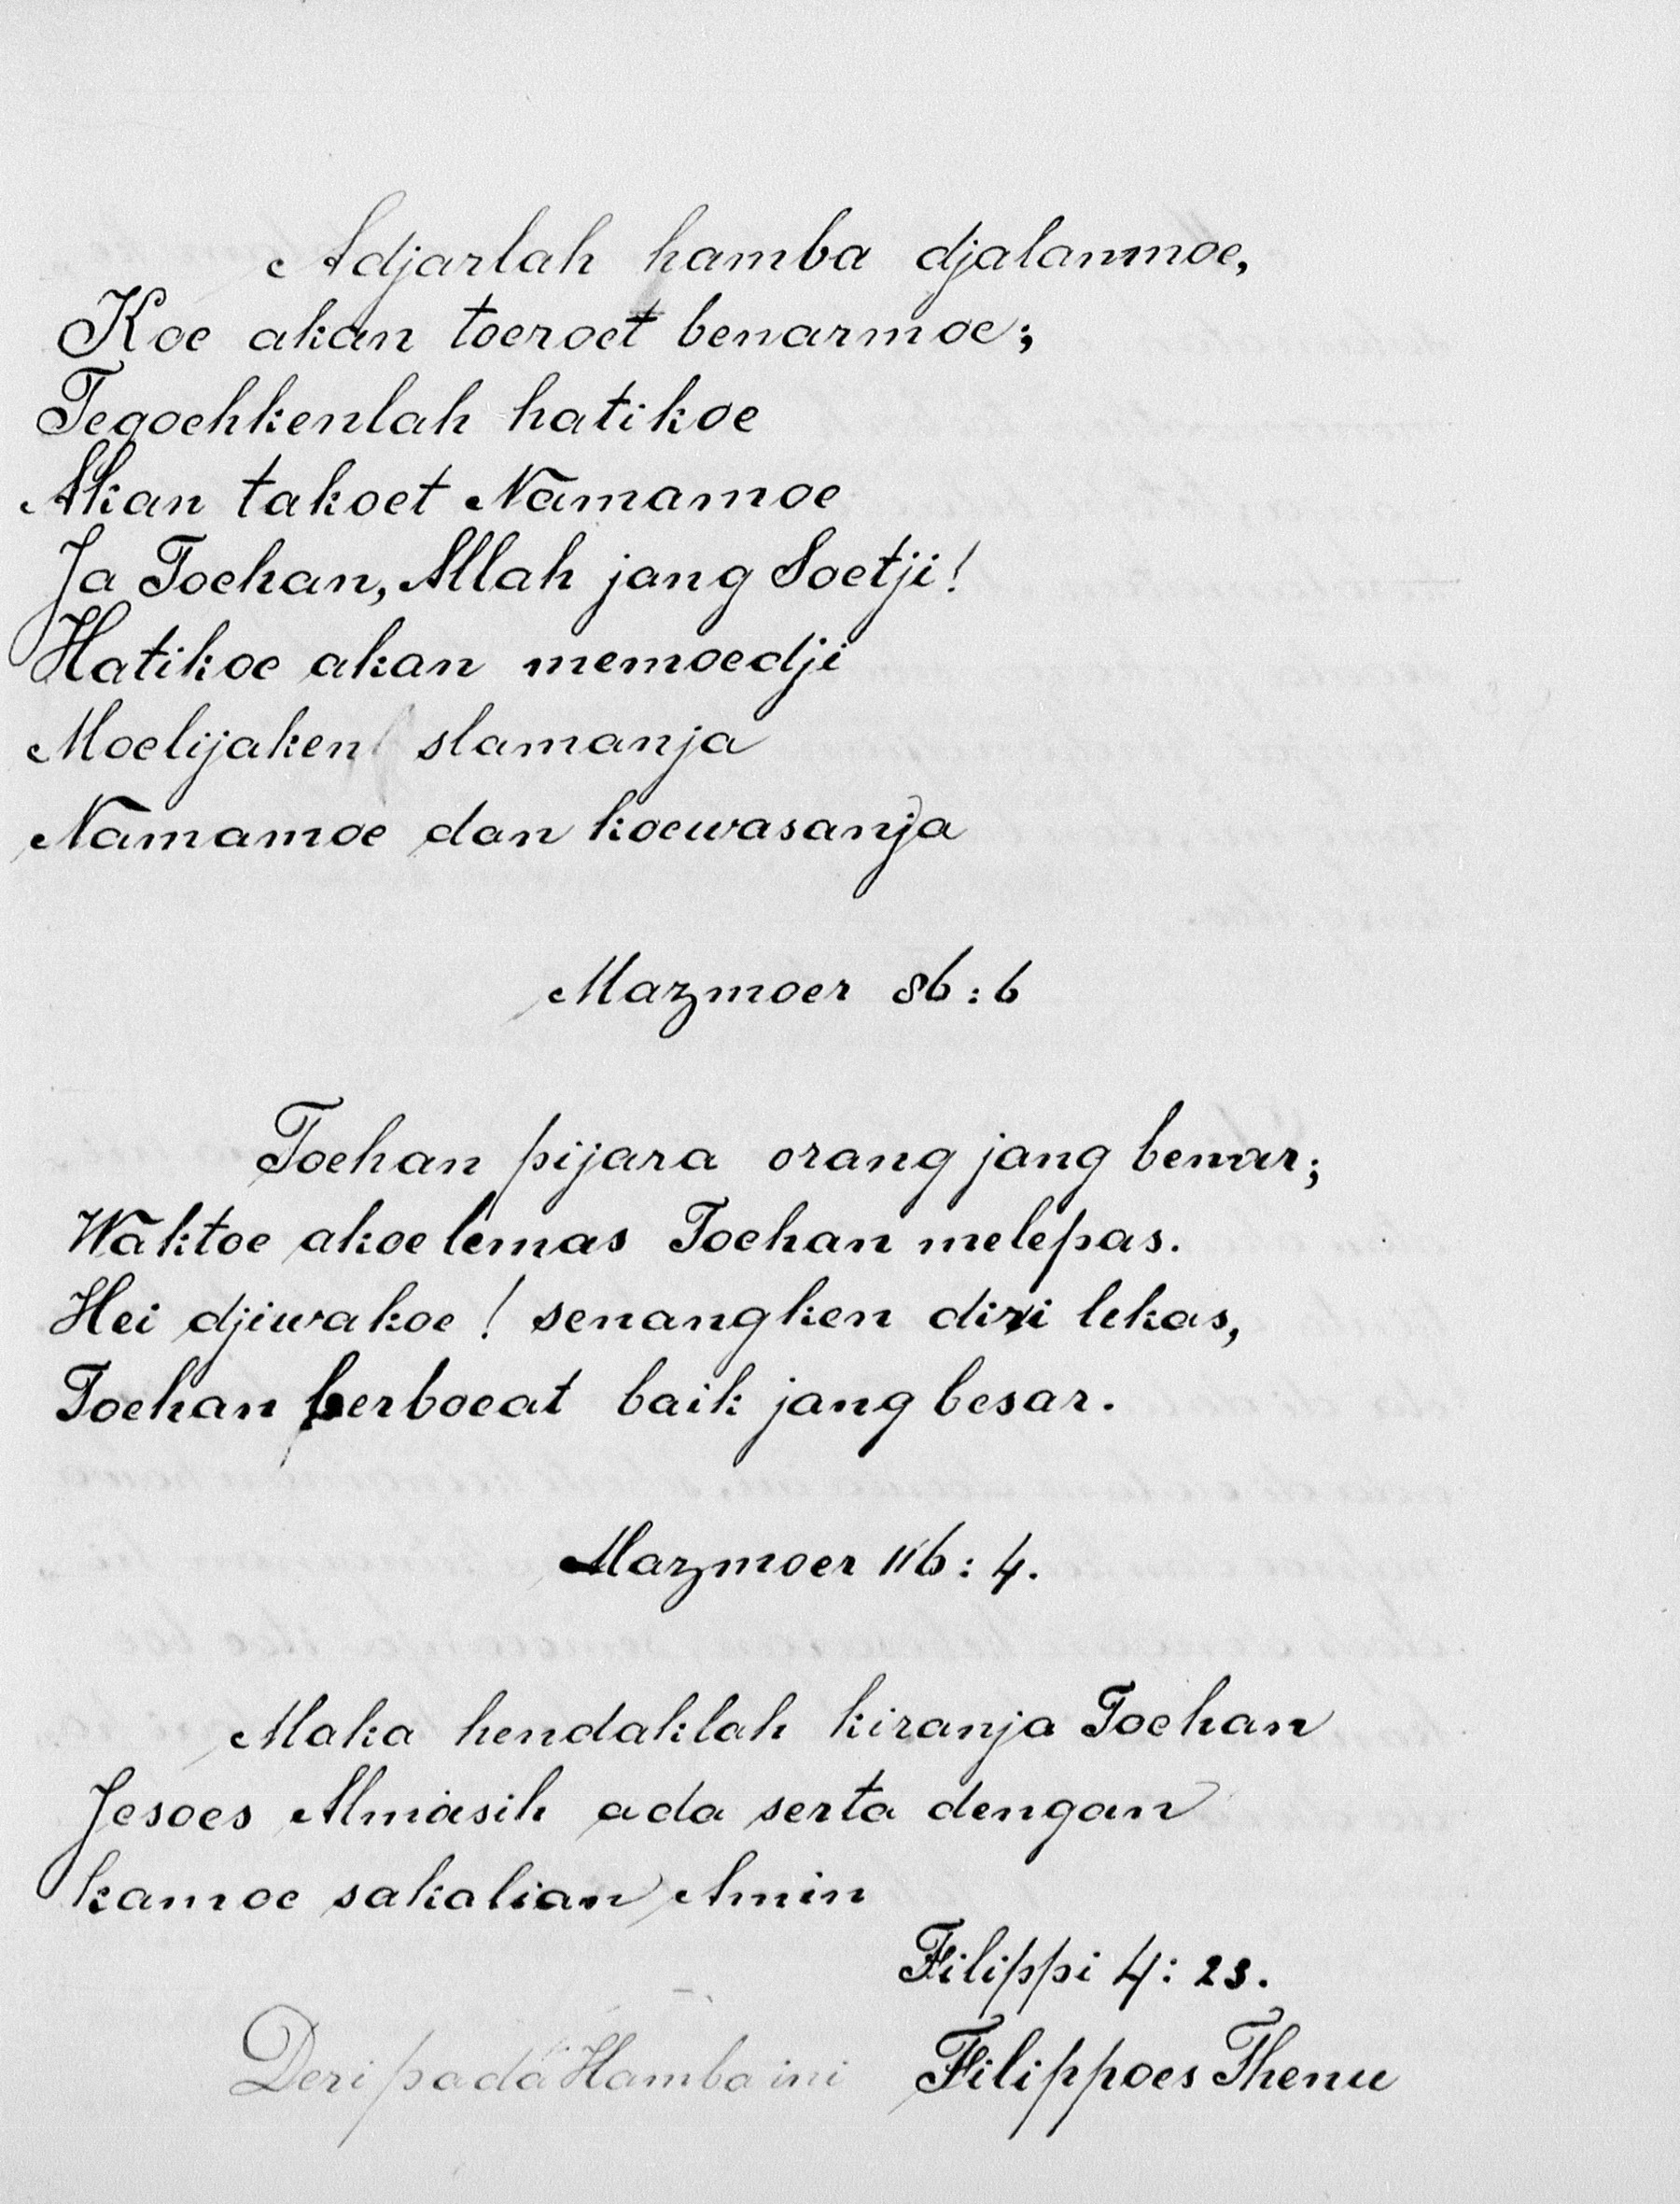 Adjarlah hamba djalanmoe,
Koe akan toeroet benarmoe;
Tegoehkenlah hatikoe
Akan takoet Namamoe
Ja Toehan, Allah jang Soetji!
Hatikoe akan memoedji
Moelijaken slamanja
Namamoe dan koewasanja
Mazmoer 86:6
Toehan pijara orang jang benar;
Waktoe akoe lemas Toehan melepas.
Hei djiwakoe! senangken diri lekas,
Toehan berboeat baik jang besar.
Mazmoer 116:4.
Maka hendaklah kiranja Toehan
Jesoes Almasih ada serta dengan
kamoe sakalian Amin
Filippi 4:23.
Deripada Hamba ini Filippoes Thenu